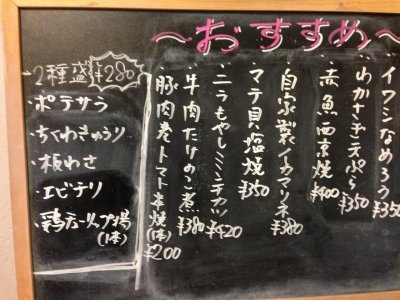 ～おすすめ～
イワシなめろう ¥350
わかさぎ天ぷら ¥350
赤魚西京焼 ¥400
自家製イカマリネ ¥380
マテ貝塩焼 ¥350
ニラもやしミンチカツ ¥420
牛肉たけのこ煮 ¥380
豚肉巻トマト串焼(1本) ¥200
2種盛 ¥280
・ポテサラ
・ちくわきゅうり
・板わさ
・エビチリ
・鶏チューリップ揚(1本)